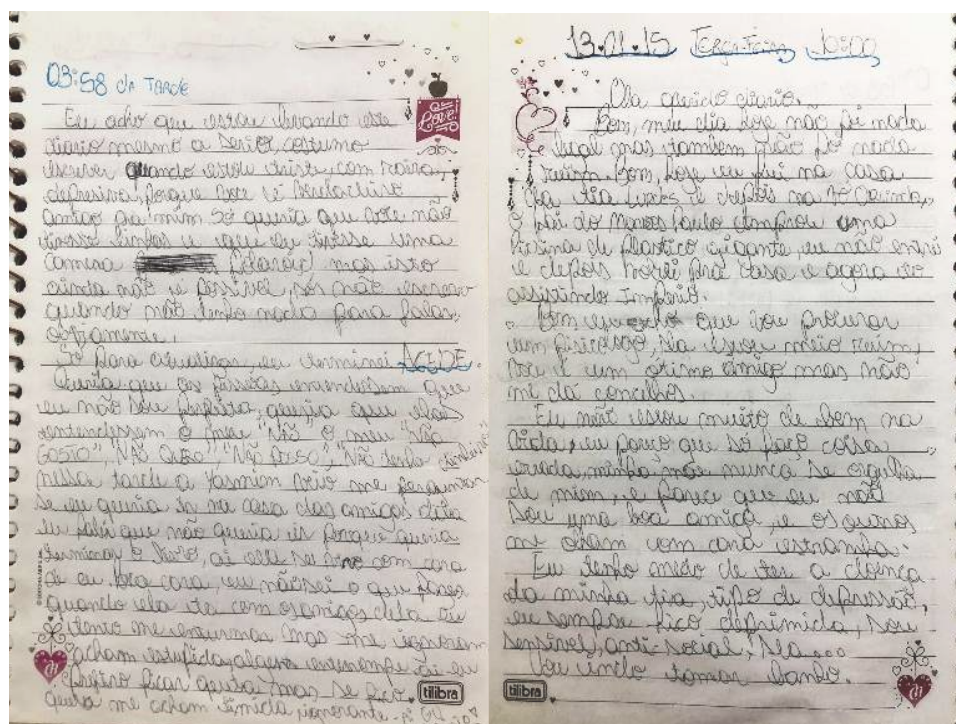 03:58 da TARDE
Love!
Eu acho que estou levando este
diario mesmo a serio, costumo
escrever quando estou triste, com raiva,
depressiva, porque voce é
amigo pra mim só queria que voce não
tivesse linhas e que eu tivesse uma
camera Polaroid mas isto
ainda não é possivel, só não escrevo
quando não tenho nada para falar,
Só para atualizar, eu terminei ACEDE.
Queria que as pessoas entendessem que
eu não sou perfeita, queria que elas
entendessem o meu "Não" o meu "Não
GOSTO", "NÃO QUERO" "NÃO POSSO", "NÃO tenho dinheiro"
nessa tarde a Yasmim veio me perguntar
se eu queria ir na casa das amigas dela
eu falei que não queria ir porque queria
terminar o livro, ai ela se com cara
de cu pra cara, eu não sei o que fazer
quando ela ta com os amigos dela eu
tento me enturmar mas me ignoram
acham estupida, alguem ai eu
Prefiro ficar quieta mas se fico
quieta me acham timida ignorante
tilibra
13.01.15 Terça-Feira 10:00
Ola querido diario.
Bom, meu dia hoje não foi nada
legal mas tambem não foi nada
ruim. Bom, hoje eu fui na casa
da tia e depois na Vó
o pai do Marcos Paulo comprou uma
Piscina de Plastico gigante, eu não entrei
e depois voltei pra casa e agora to
assistindo Imperio.
Bom eu acho que vou procurar
um psicologo, sla estou meio ruim,
voce é um otimo amigo mas não
me da concelhos.
Eu não estou muito de bem na
vida, eu parço que só faço coisa
errada, minha mãe nunca se orgulha
de mim, e parece que eu não
sou uma boa amiga, e os outros
me olham com cara estranha.
Eu tenho medo de ter a doença
da minha tia, tipo de depressão,
eu sempre fico deprimida, sou
sensivel, anti-social, sla...
Vou indo tomar banho.
tilibra